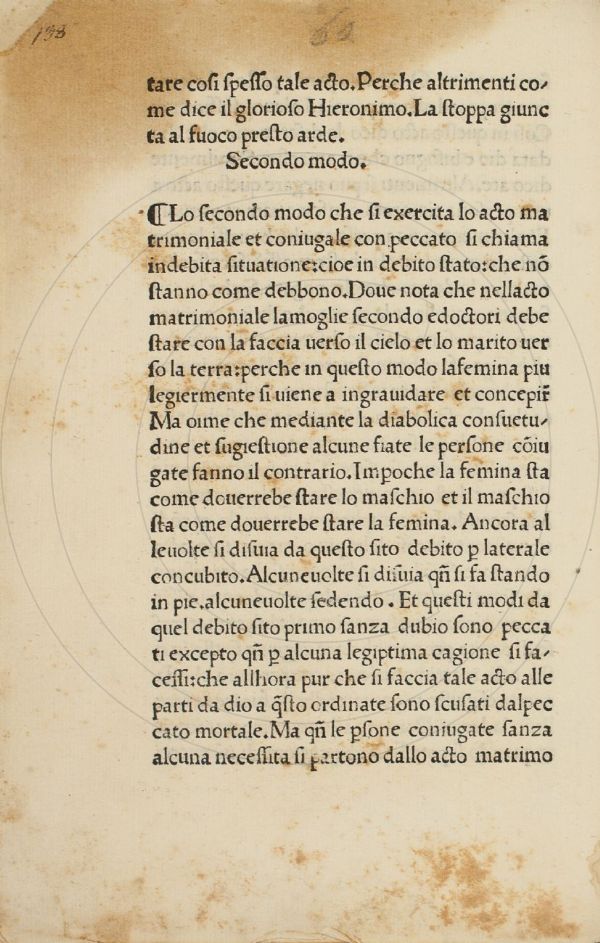 138
60
tare coſi ſpeſſo tale acto.Perche altrimenti co⸗
me dice il glorioſo Hieronimo.La ſtoppa giunc
ta al fuoco preſto arde.
Secondo modo.
¶Lo ſecondo modo che ſi exercita lo acto ma
trimoniale et coniugale con peccato ſi chiama
indebita ſituatione:cioe in debito ſtato:che nõ
ſtanno come debbono.Doue nota che nellacto
matrimoniale lamoglie ſecondo edoctori debe
ſtare con la faccia uerſo il cielo et lo marito uer
ſo la terra:perche in queſto modo lafemina piu
legiermente ſi uiene a ingrauidare et concepir̃
Ma oime che mediante la diabolica conſuetu⸗
dine et ſugieſtione alcune fiate le perſone cõiu
gate fanno il contrario.Impoche la femina ſta
come douerrebe ſtare lo maſchio et il maſchio
ſta come douerrebe ſtare la femina. Ancora al
leuolte ſi diſuia da queſto ſito debito p laterale
concubito.Alcuneuolte ſi diſuia qñ ſi fa ſtando
in pie.alcuneuolte ſedendo . Et queſti modi da
quel debito ſito primo ſanza dubio ſono pecca
ti excepto qñ ꝑ alcuna legiptima cagione ſi fa⸗
ceſſi:che allhora pur che ſi faccia tale acto alle
parti da dio a q̃ſto ordinate ſono ſcuſati dalpec
cato mortale.Ma qñ le pſone coniugate ſanza
alcuna neceſſita ſi partono dallo acto matrimo